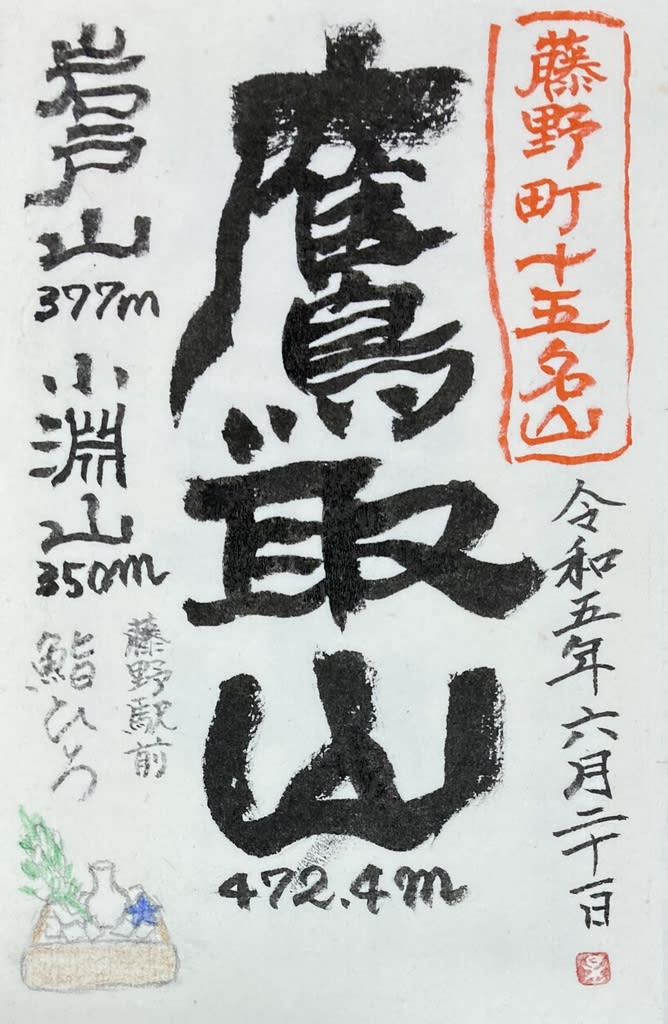 藤野町十五名山
令和五年六月二十一日
鷹取山
472.4m
岩戸山
377m
小淵山
350m
藤野駅前
鮨ひろ